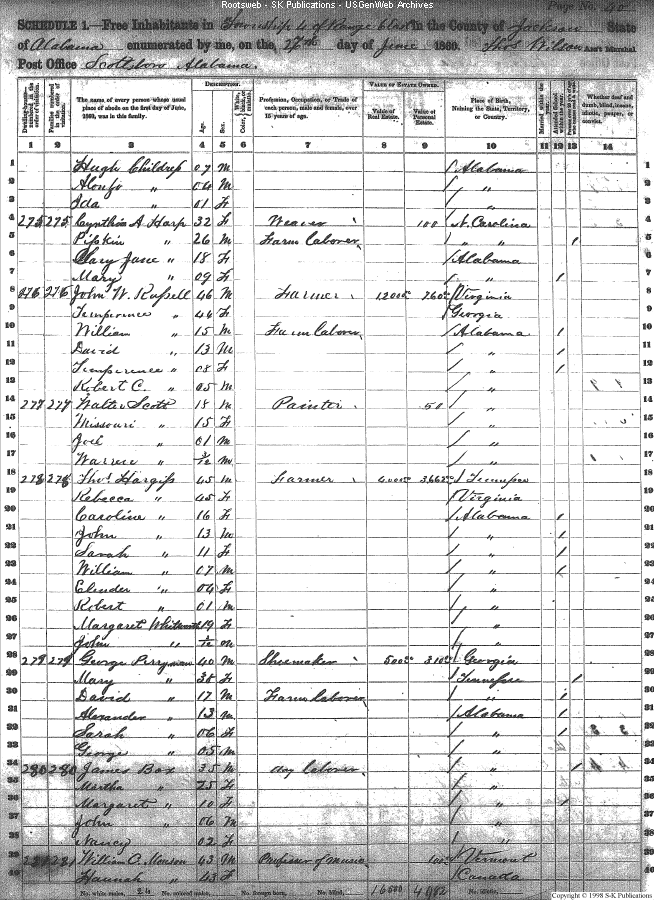 Rootsweb - SK Publications - USGenWeb Archives
Page No. 40
SCHEDULE 1.—Free Inhabitants in Township 4 of Range 6 East in the County of Jackson State
of Alabama enumerated by me, on the 27th day of June 1860. Thos Wilson Ass't Marshal
Post Office Scottsboro Alabama.
DESCRIPTION. VALUE OF ESTATE OWNED.
The name of every person whose usual place of abode on the first day of June, 1860, was in this family.
Age. Sex.
Profession, Occupation, or Trade of each person, male and female, over 15 years of age.
Value of Real Estate. Value of Personal Estate.
Place of Birth, Naming the State, Territory, or Country.
Whether deaf and dumb, blind, insane, idiotic, pauper, or convict.
1 2 3 4 5 6 7 8 9 10 11 12 13 14
1 Hugh Childress 07 M / Alabama
2 Alonzo " 04 M / "
3 Ida " 01 F / "
4 275 275 Cynthia A Harp 32 F Weaver 100 / N. Carolina
5 Pipkin " 26 M Farm laborer / " " /
6 Mary Jane " 18 F / Alabama
7 Mary " 09 F / " /
8 276 276 John W. Russell 46 M Farmer 12000 760 / Virginia
9 Temperence " 46 F / Georgia
10 William " 15 M Farm laborer / Alabama /
11 David " 13 M / " /
12 Temperence " 08 F / " /
13 Robert C. " 05 M / "
14 277 277 Walter Scott 18 M Painter 50 / "
15 Missouri " 15 F / "
16 Joel " 01 M / "
17 Warren " M / "
18 278 278 Thos Hargiss 45 M Farmer 4000 3662 / Tennessee
19 Rebecca " 45 F / Virginia
20 Caroline " 16 F / Alabama /
21 John " 13 M / " /
22 Sarah " 11 F / " /
23 William " 07 M / " /
24 Elender " 04 F / "
25 Robert " 01 M / "
26 Margaret Whitworth 19 F / "
27 John " M / "
28 279 279 George Perryman 40 M Shoemaker 500 310 / Georgia
29 Mary " 38 F / Tennessee /
30 David " 17 M Farm laborer / " /
31 Alexander " 13 M / Alabama /
32 Sarah " 06 F / " /
33 George " 05 M / "
34 280 280 James Box 35 M day laborer / " /
35 Martha " 25 F / "
36 Margaret " 10 F / " /
37 John " 06 M / "
38 Nancy 02 F / "
39 281 281 William C. Monson 43 M Professor of Music 100 / Vermont
40 Hannah " 43 F / Canada
No. white males, No. colored males, No. foreign born, No. blind, 16500 4982 No. idiotic,
Copyright © 1998 S-K Publications